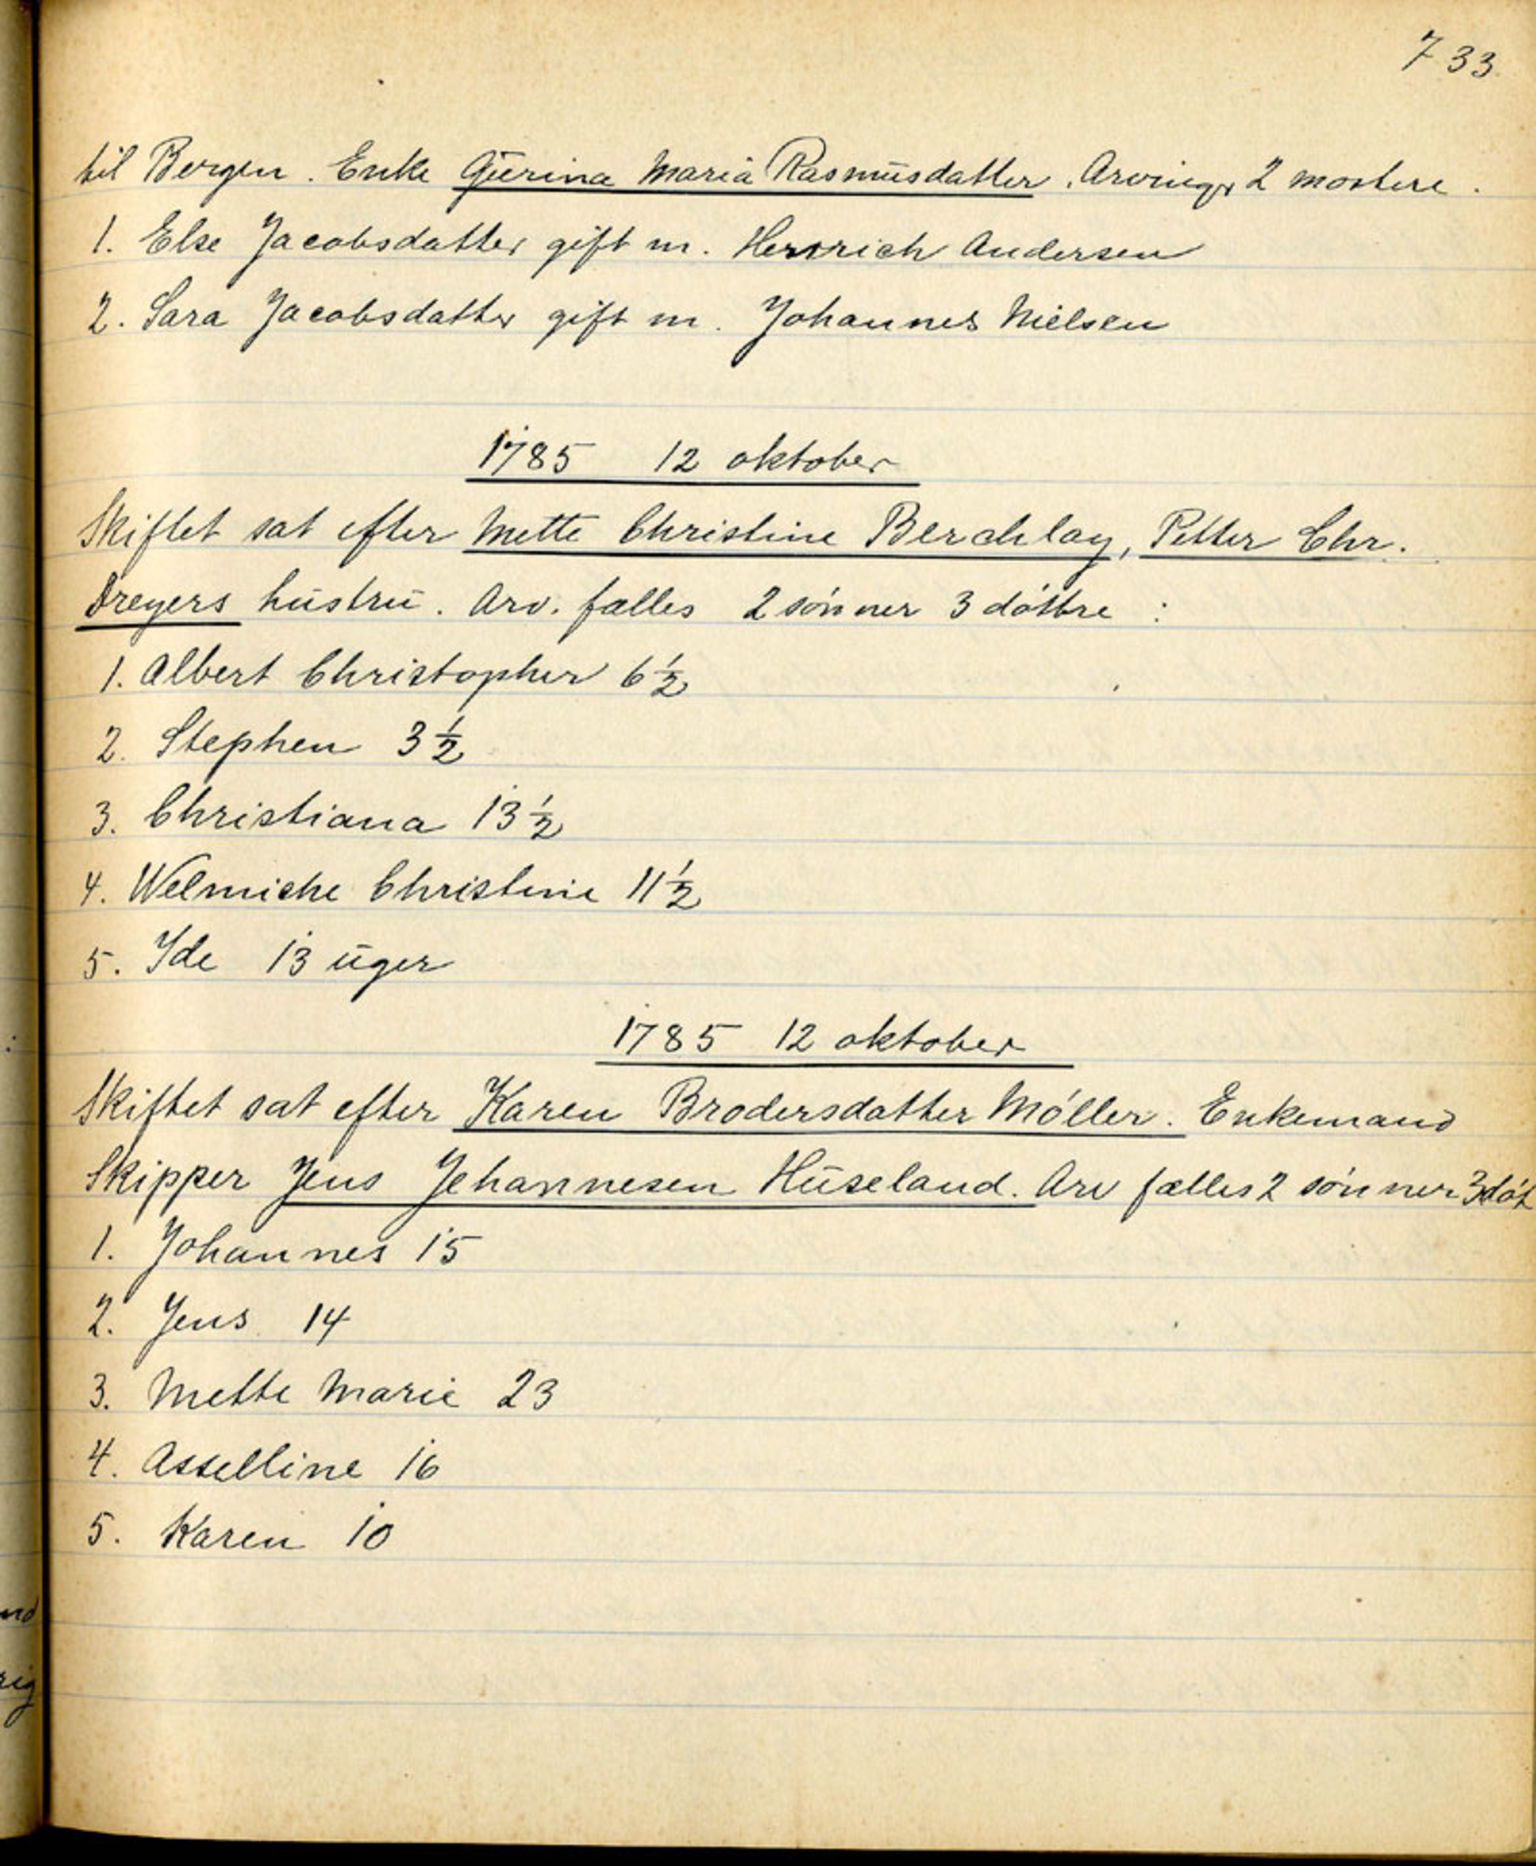 733
til Bergen. Enke Gurina Maria Rasmusdatter. Arvinger 2 mostere.
1. Else Jacobsdatter gift m. Henrich Andersen
2. Sara Jacobsdatter gift m. Johannes Nielsen
1785 12 oktober
Skiftet sat efter Mette Christine Berchlay, Petter Chr.
Dreyers hustru. Arv. fælles 2 sönner 3 döttre :
1. Albert Christopher 6½
2. Stephen 3½
3. Christiana 13½
4. Welmiche Christine 11½
5. Ide 13 uger
1785 12 oktober
Skiftet sat efter Karen Brodersdatter Möller. Enkemand
Skipper Jens Jehannesen Huseland. Arv fælles 2 sönner 3 döt
1. Johannes 15
2. Jens 14
3. Mette Marie 23
4. Asselline 16
5. Karen 10